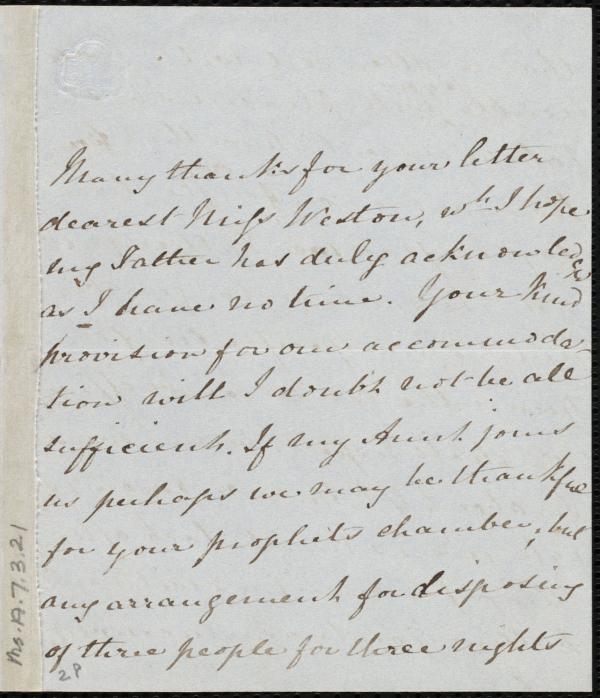 Many thanks for your letter
dearest Miss Weston, wh I hope
my Father has duly acknowledged
as I have no time. Your kind
provision for our accommoda-
tion will I doubt not be all
sufficient. If my Aunt joins
us perhaps we may be thankful
for your prophets chamber, but
any arrangement for disposing
of three people for three nights
Ms.A.7.3.21
2P